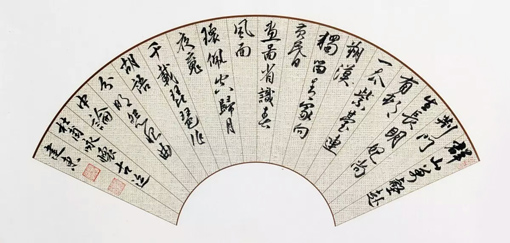 群山萬壑赴
荊門
生長明妃尚
有村
一去紫臺連
朔漠
獨留青冢向
黃昏
畫圖省識春
風面
環佩空歸月
夜魂
千載琵琶作
胡語
分明怨恨曲
中論
杜甫詠懷古迹